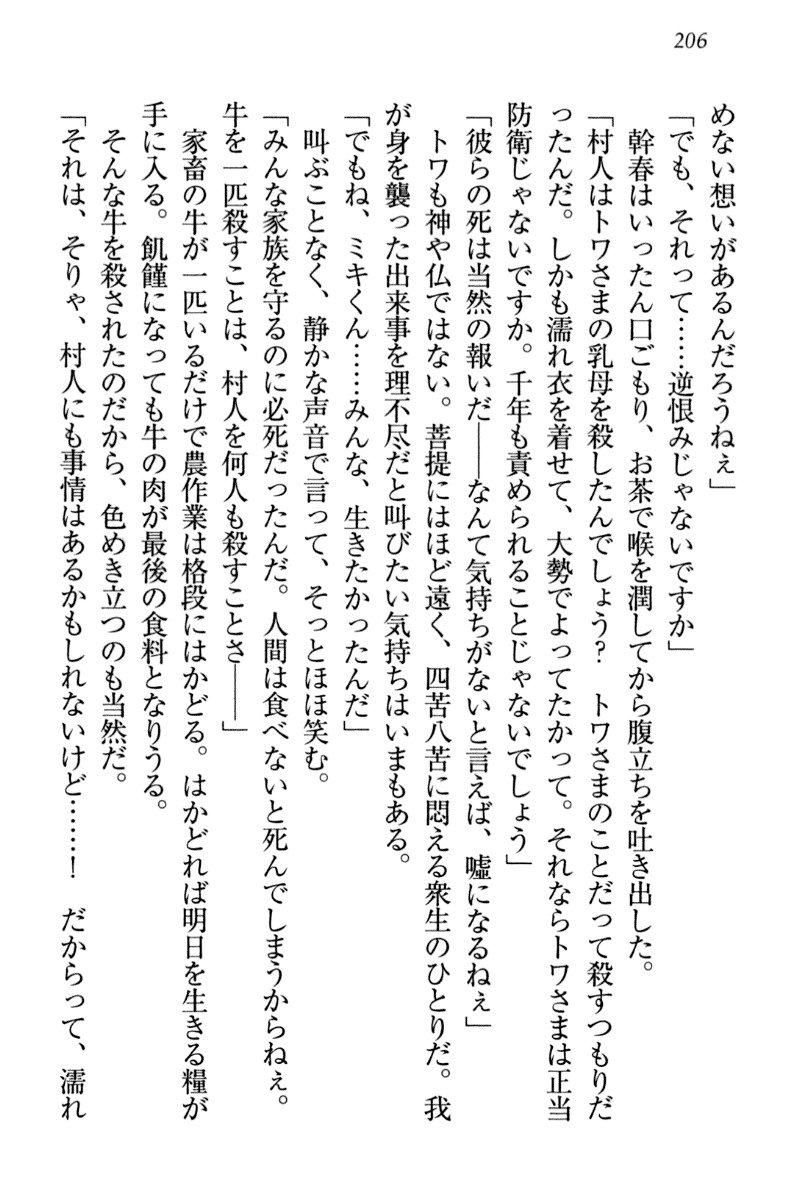 206
めない想いがあるんだろうねぇ」
「でも、それって……逆恨みじゃないですか」
　幹春はいったん口ごもり、お茶で喉を潤してから腹立ちを吐き出した。
「村人はトワさまの乳母を殺したんでしょう?　トワさまのことだって殺すつもりだ
ったんだ。しかも濡れ衣を着せて、大勢でよってたかって。それならトワさまは正当
防衛じゃないですか。千年も責められることじゃないでしょう」
「彼らの死は当然の報いだ――なんて気持ちがないと言えば、嘘になるねぇ」
　トワも神や仏ではない。菩提にはほど遠く、四苦八苦に悶える衆生のひとりだ。我
が身を襲った出来事を理不尽だと叫びたい気持ちはいまもある。
「でもね、ミキくん……みんな、生きたかったんだ」
　叫ぶことなく、静かな声音で言って、そっとほほ笑む。
「みんな家族を守るのに必死だったんだ。人間は食べないと死んでしまうからねぇ。
牛を一匹殺すことは、村人を何人も殺すことさ――」
　家畜の牛が一匹いるだけで農作業は格段にはかどる。はかどれば明日を生きる糧が
手に入る。飢饉になっても牛の肉が最後の食料となりうる。
　そんな牛を殺されたのだから、色めき立つのも当然だ。
「それは、そりゃ、村人にも事情はあるかもしれないけど……!　だからって、濡れ